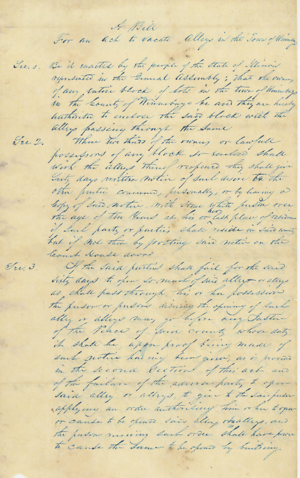 A Bill
For an act to vacate Alleys in the Town of
Sec. 1. Be it enacted by the people of the State of Illinois
represented in the General Assembly; that the owner
of any entire block of lots in the town of Winnebago
in the County of Winnebago be and they are hereby
authorized to enclose the said block with the
alleys passing through the same
Sec 2. When two thirds of the owners or lawful
possessors of any block so vacated shall
the alleys they shall give
sixty days notice of such to the
other parties concerned, personally, or by leaving a
copy of said notice with some white person over
the age of ten years at his or last place of
if such party or parties shall reside in said
but if not then by posting said notice on the
Court House door
Sec 3. If the said parties shall fail for the said
sixty days to open so much of said alley or alleys
as shall pass through his or her possession
the person or persons desiring the opening of such
alley or alleys may go before any Justice
of the Peace of said county whose duty
it shall be upon proof being made of
such notice having been given, as is
in the second Section of this act and
of the failure of the party to open
said alley, or alleys, to give to the
applying an order authorizing him or her to open
or cause to be opened said alley or alleys, and
the person receiving such order shall have power
to cause the same to be opened by